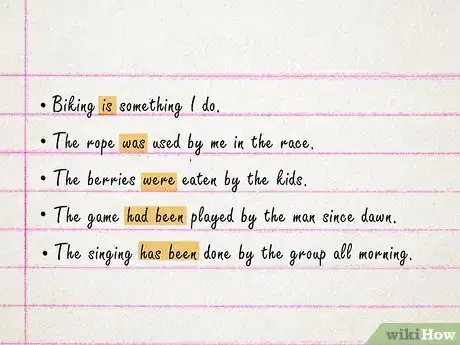 • Biking is something I do.
• The rope was used by me in the race.
• The berries were eaten by the kids.
• The game had been played by the man since dawn.
• The singing has been done by the group all morning.
wikiHow